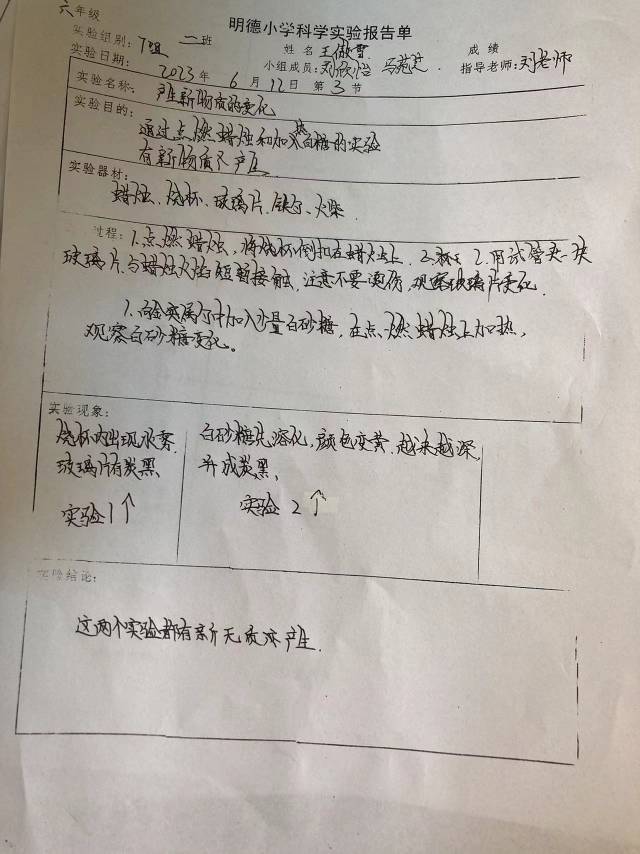 六年级
明德小学科学实验报告单
实验组别: 7组 二班 姓名 王傲雪 成绩
实验日期: 2023年 6月 12日 第3节 小组成员: 刘欣怡 指导老师: 刘老师
实验名称: 产生新物质的变化
实验目的: 通过点燃蜡烛和加热白糖的实验
有新物质 产生
实验器材:
蜡烛、烧杯、玻璃片、铁勺、火柴
过程: 1.点燃蜡烛,将烧杯倒扣在蜡烛上. 2.用试管夹夹一块
玻璃片与蜡烛火焰短暂接触,注意不要烫伤,观察玻璃片变化.
1.向金属勺中加入少量白砂糖,在点燃蜡烛上加热,
观察白砂糖变化。
实验现象:
烧杯内出现水雾. 白砂糖先溶化,颜色变黄.越来越深,
玻璃片有炭黑 并成炭黑,
实验1↑ 实验2↑
实验结论:
这两个实验都有新无质 产生.